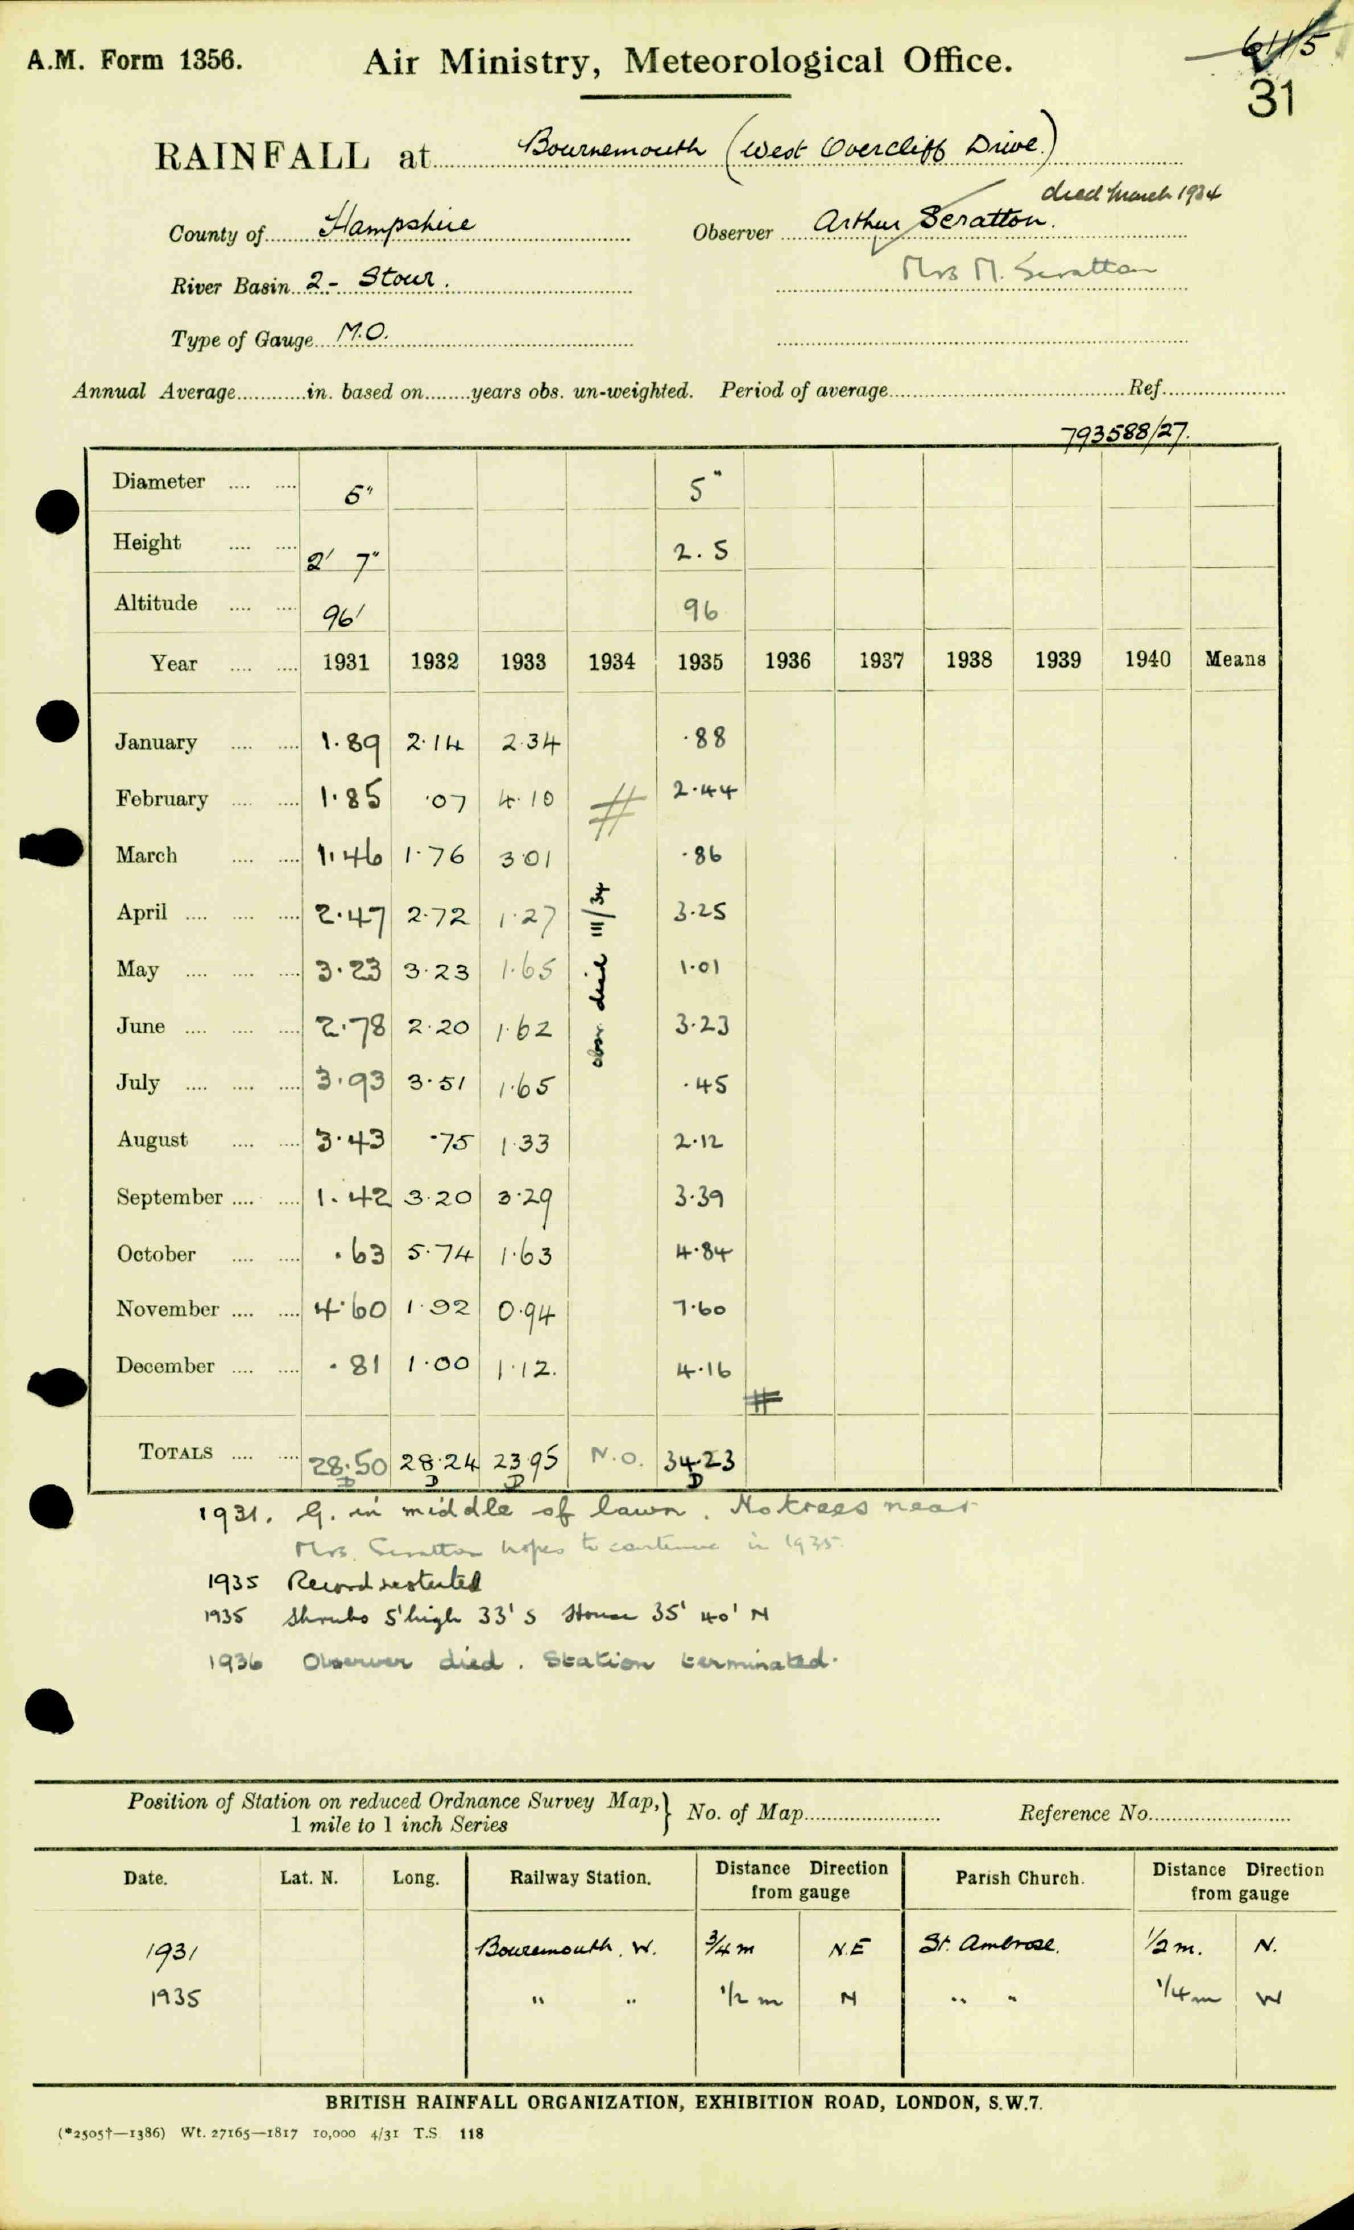 A.M. Form 1356.
Air Ministry, Meteorological Office.
6115
31
RAINFALL at Bournemouth (West Overcliff Drive.)
died March 1934
County of Hampshire Observer Arthur Scratton.
River Basin 2- Stour. Mrs M. Scratton
Type of Gauge M.O.
Annual Average in. based on years obs. un-weighted. Period of average Ref.
793588/27.
Diameter 5" 5"
Height 2' 7" 2.5
Altitude 96' 96
Year 1931 1932 1933 1934 1935 1936 1937 1938 1939 1940 Means
January 1.89 2.14 2.34 .88
February 1.85 .07 4.10 # 2.44
March 1.46 1.76 3.01 .86
April 2.47 2.72 1.27 3.25
May 3.23 3.23 1.65 1.01
June 2.78 2.20 1.62 3.23
July 3.93 3.51 1.65 .45
August 3.43 .75 1.33 2.12
September 1.42 3.20 3.29 3.39
October .63 5.74 1.63 4.84
November 4.60 1.92 0.94 7.60
December .81 1.00 1.12. 4.16
obsr. died III/34
#
TOTALS 28.50 28.24 23.95 N.O. 34.23
D D D D
1931. G. in middle of lawn. No trees near
Mrs. Scratton hopes to continue in 1935.
1935 Record restarted
1935 Shrubs 5' high 33' S House 35' 40' N
1936 Observer died. Station terminated.
Position of Station on reduced Ordnance Survey Map, } No. of Map Reference No.
1 mile to 1 inch Series
Date. Lat. N. Long. Railway Station. Distance Direction from gauge Parish Church. Distance Direction from gauge
1931 Bournemouth. W. 3/4 m N.E St. Ambrose. 1/2 m. N.
1935 " " 1/2 m N " " 1/4 m W
BRITISH RAINFALL ORGANIZATION, EXHIBITION ROAD, LONDON, S.W.7.
(*2505†—1386) Wt. 27165—1817 10,000 4/31 T.S. 118